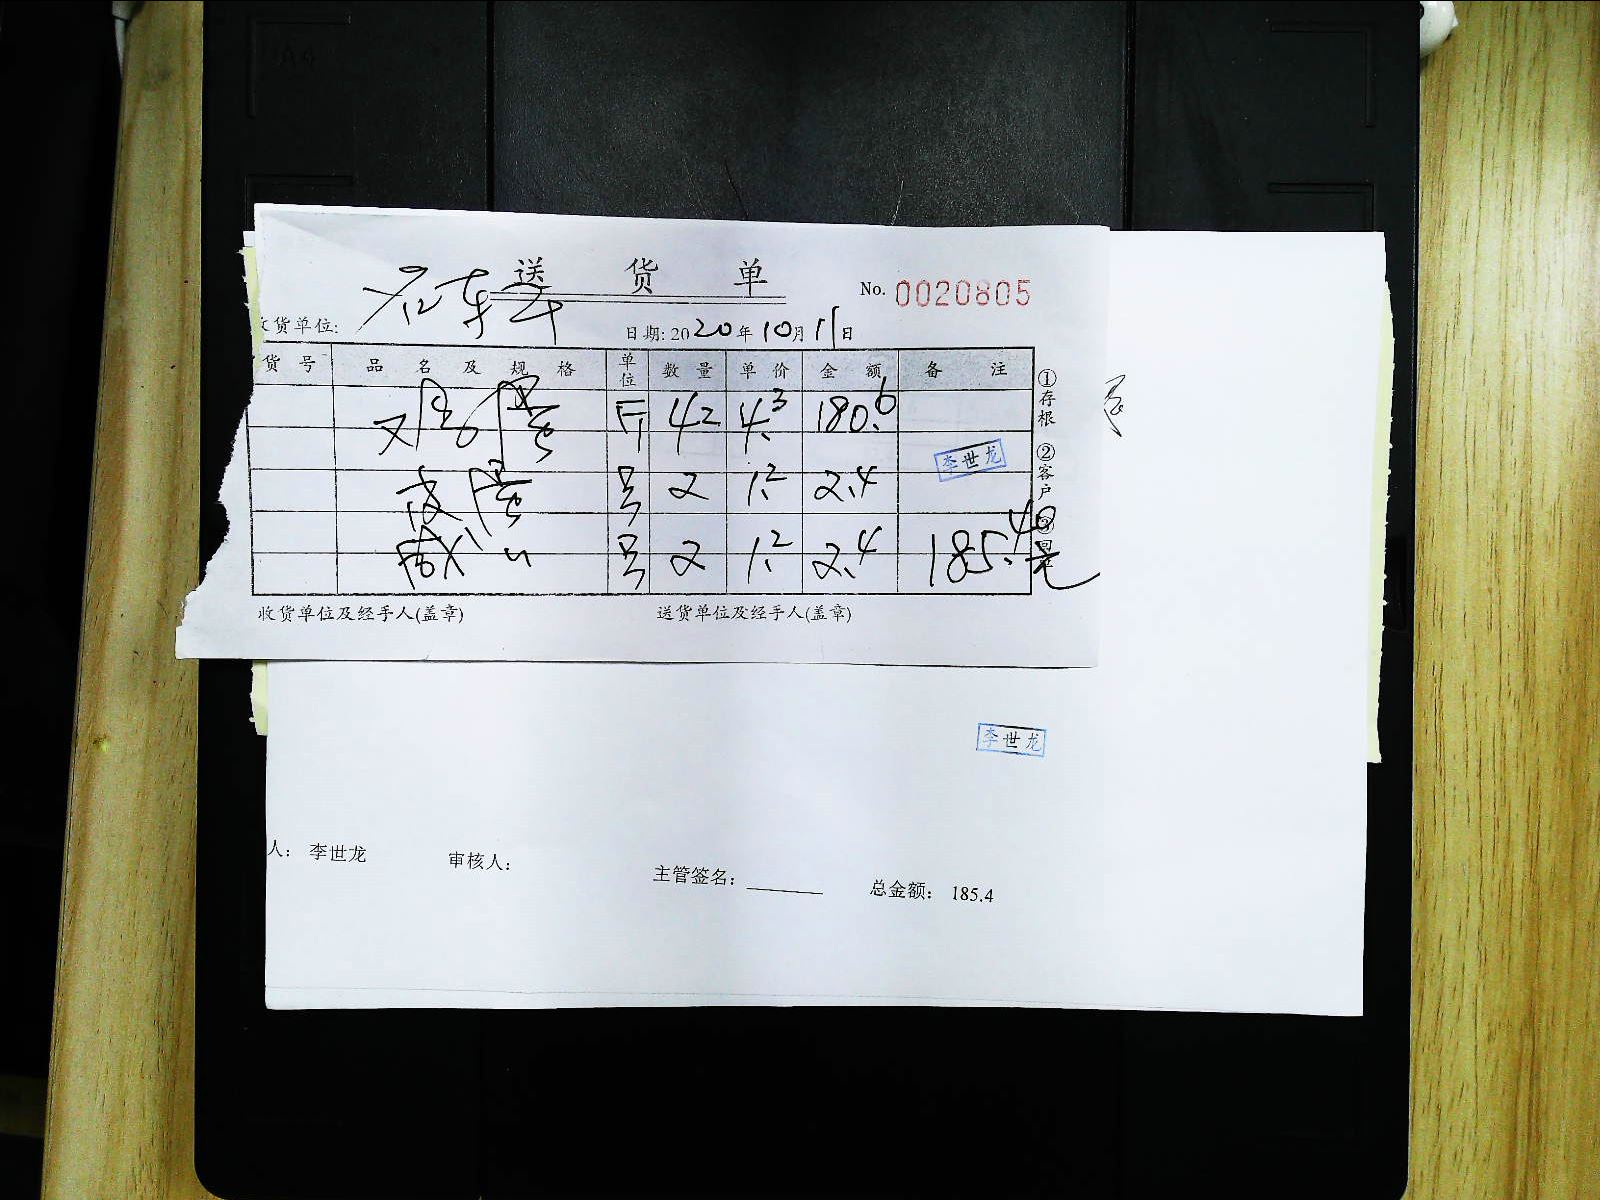 送货单
No. 0020805
收货单位:
日期: 2020年10月11日
货号 品名及规格 单位 数量 单价 金额 备注
斤 42 4.3 180.6
李世龙
号 2 1.2 2.4
号 2 1.2 2.4 185.40元
①存根 ②客户
收货单位及经手人(盖章) 送货单位及经手人(盖章)
李世龙
人: 李世龙 审核人: 主管签名: 总金额: 185.4